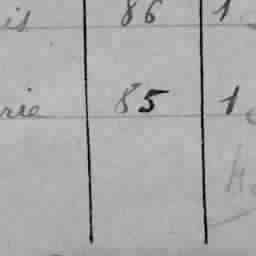 is 86 1
rie 85 1